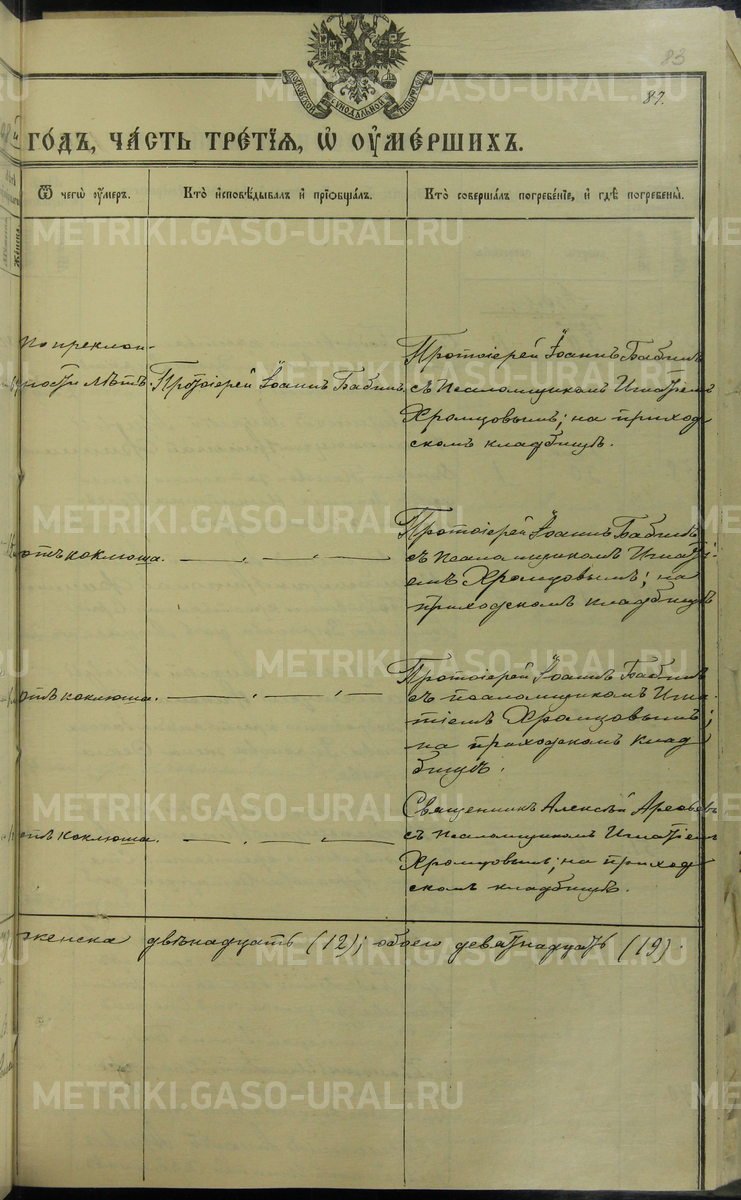 83
87.
МОСКОВСКОЙ СѴНОДАЛЬНОЙ ТИПОГРАФІИ
ГО́ДЪ, ЧА́СТЬ ТРЕ́ТІѦ, Ѡ҆ ОУ҆МЕ́РШИХЪ.
Ѿ чегѡ̀ ᲂу҆́меръ.
Кто̀ и҆сповѣ́дывалъ и҆ прїѡбща́лъ.
Кто̀ соверша́лъ погребе́нїе, и҆ гдѣ̀ погребены̀.
По преклон-
ности лѣтъ.
Протоіерей Іоаннъ Бабинъ.
Протоіерей Іоаннъ Бабинъ
съ псаломщикомъ Игнатіемъ
Хромцовымъ; на приход
скомъ кладбищѣ.
отъ коклюша.
— „ — „ —
Протоіерей Іоаннъ Бабинъ
съ псаломщикомъ Игнаті-
емъ Хромцовымъ; на
приходскомъ кладбищѣ
отъ коклюша.
— „ — „ —
Протоіерей Іоаннъ Бабинъ
съ псаломщикомъ Игна-
тіемъ Хромцовымъ;
на приходскомъ клад
бищѣ.
отъ коклюша.
— „ — „ —
Священникъ Алексѣй
съ псаломщикомъ Игнатіемъ
Хромцовымъ; на приход
скомъ кладбищѣ.
женска двѣнадцать (12); обоего девятнадцать (19).
METRIKI.GASO-URAL.RU